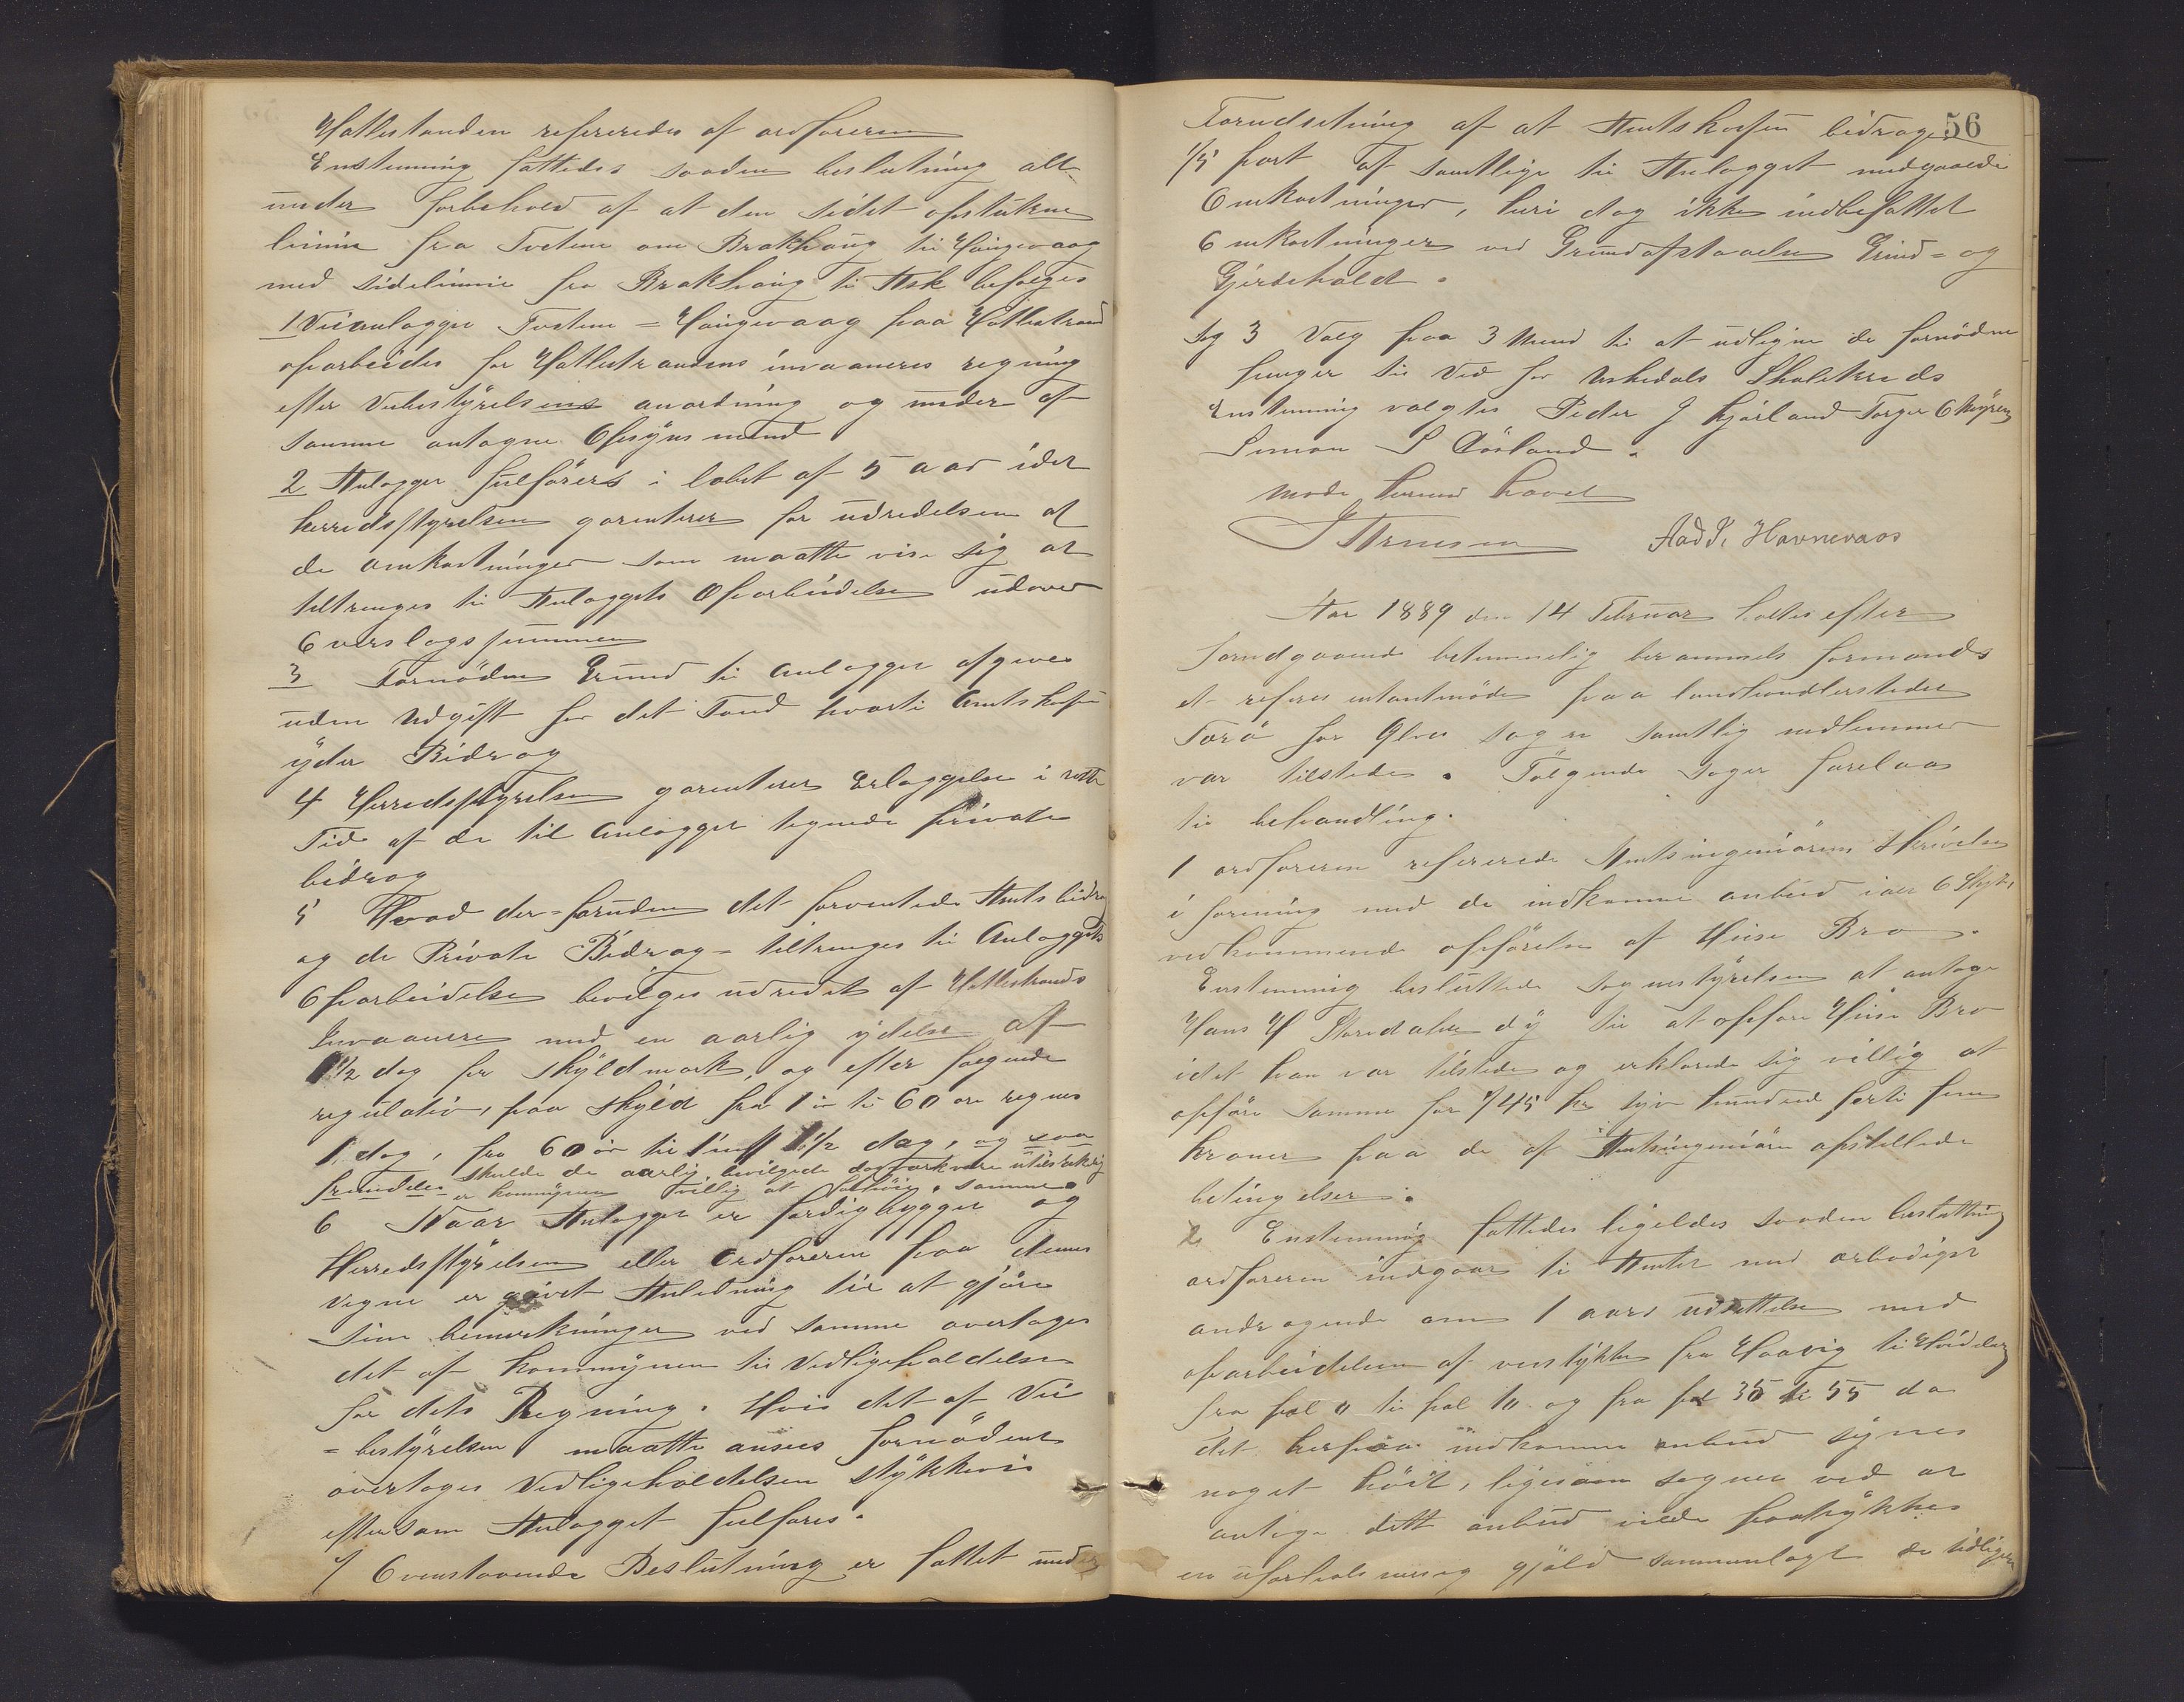 Hattestanden refereredes af ordføreren
Enstemmig fattedes saaden beslutning alt
under forbehold af at den sidst opstukne
linie fra Tveten om Brakhaug til Haugevaag
med sidelinie fra Brakhaug til Ask befølges
1 Veianlægget Tveten = Haugevaag paa Hattestrand
oparbeides for Hattestrandens invaaneres regning
efter Veibestÿrelsens anordning og under af
samme antagne Opsÿns mænd
2 Anlægget fulføres i løbet af 5 aar idet
herredsstyrelsen garanterer for udredelsen af
de omkostninger som maatte vise sig at
tiltrenges til Anlæggets Oparbeidelse udover
Overslagssummen
3 Fornødne Grund til anlægget afgives
uden Udgift for det Fond hvorti Amtskassen
ÿder Bidrag
4 Herredsstyrelsen garanterer Erlæggelse i rette
Tid af de til anlægget tegnede private
bidrag
5 Hvad der = foruden det forventede Amtsbidrag
og de Private Bidrag = tiltrenges til Anlæggets
Oparbeidelse bevilges udredet af Hattestrands
Invaanere med en aarlig ÿdelse af
1 1/2 dag per skÿldmark, og efter følgende
regulativ, paa skÿld fra 1 ør ti 60 øre regnes
1 dag, fra 60 ør til 1 mk 1 1/2 dag, og saa
fremdeles skulde de aarlig bevilgede dagsværk være utilstrækelig
er kommÿnen villig at forhøie samme.
6 Naar Anlægget er færdigbÿgget og
Herredsstÿrelsen eller Ordføreren paa dennes
vegne er givet Anledning til at gjøre
sine bemerkninger ved samme overtages
det af kommÿnen til Vedligeholdelse
for dets Regning. Hvis det af Vei
= bestÿrelsen maatte ansees fornødent
overtages Vedligeholdelsen stÿkkevis
eftersom Anlægget fulføres.
7 Ovenstaaende Beslutning er fattet under
56
Forudsetning af at Amtskassen bidrager
1/5 part af samtlige til Anlægget medgaaede
Omkostninger, heri dog ikke indbefattet
Omkostninger ved Grundafstaaelse Grind = og
Gjerdehold.
Sag 3 Valg paa 3 Mænd til at udligne de fornødne
penger til Ved for Uskedals Skolekreds
Enstemmig valgtes Peder J Kjærland Torger Okÿren
Simon S
Møde hermed hævet
J Arnesen Aad P. Havnevaas
Aar 1889 den 14 Februar holtes efter
forudgaaende betimmelig berammels formands
et representantmøde paa landhandlerstedet
Torø for Ølves sogn samtlig medlemmer
var tilstede. Følgende sager forelaa
til behandling.
1 ordføreren refererede Amtsingeniørens Skrivelse
i forening med de indkomne anbud i alt 6 Stÿk,
vedkommende opførelse af Huse Bro.
Enstemmig besluttede Sognestÿrelsen at antage
Hans H til at opføre Huse Bro
idet han var tilstede og erklærede sig villig at
opføre samme for 745 kr syv hundrede førti fem
kroner paa de af Amtsingeniøren opstillede
betingelser.
2 Enstemmig fattedes ligeledes saaden beslutning
ordføreren indgaar til Amtet med ærbødigst
andragende om 1 aars udsettelse med
oparbeidelsen af veistÿkke fra Haavig til
fra pæl 0 til pæl 10 og fra pæl 35 til 55 da
det herpaa indkomne anbud sÿnes
noget høit, ligesom sognet ved at
antage dett anbud vilde paatrÿkkes
en uforholdsmæssig gjæld sammenlagt de tidligere